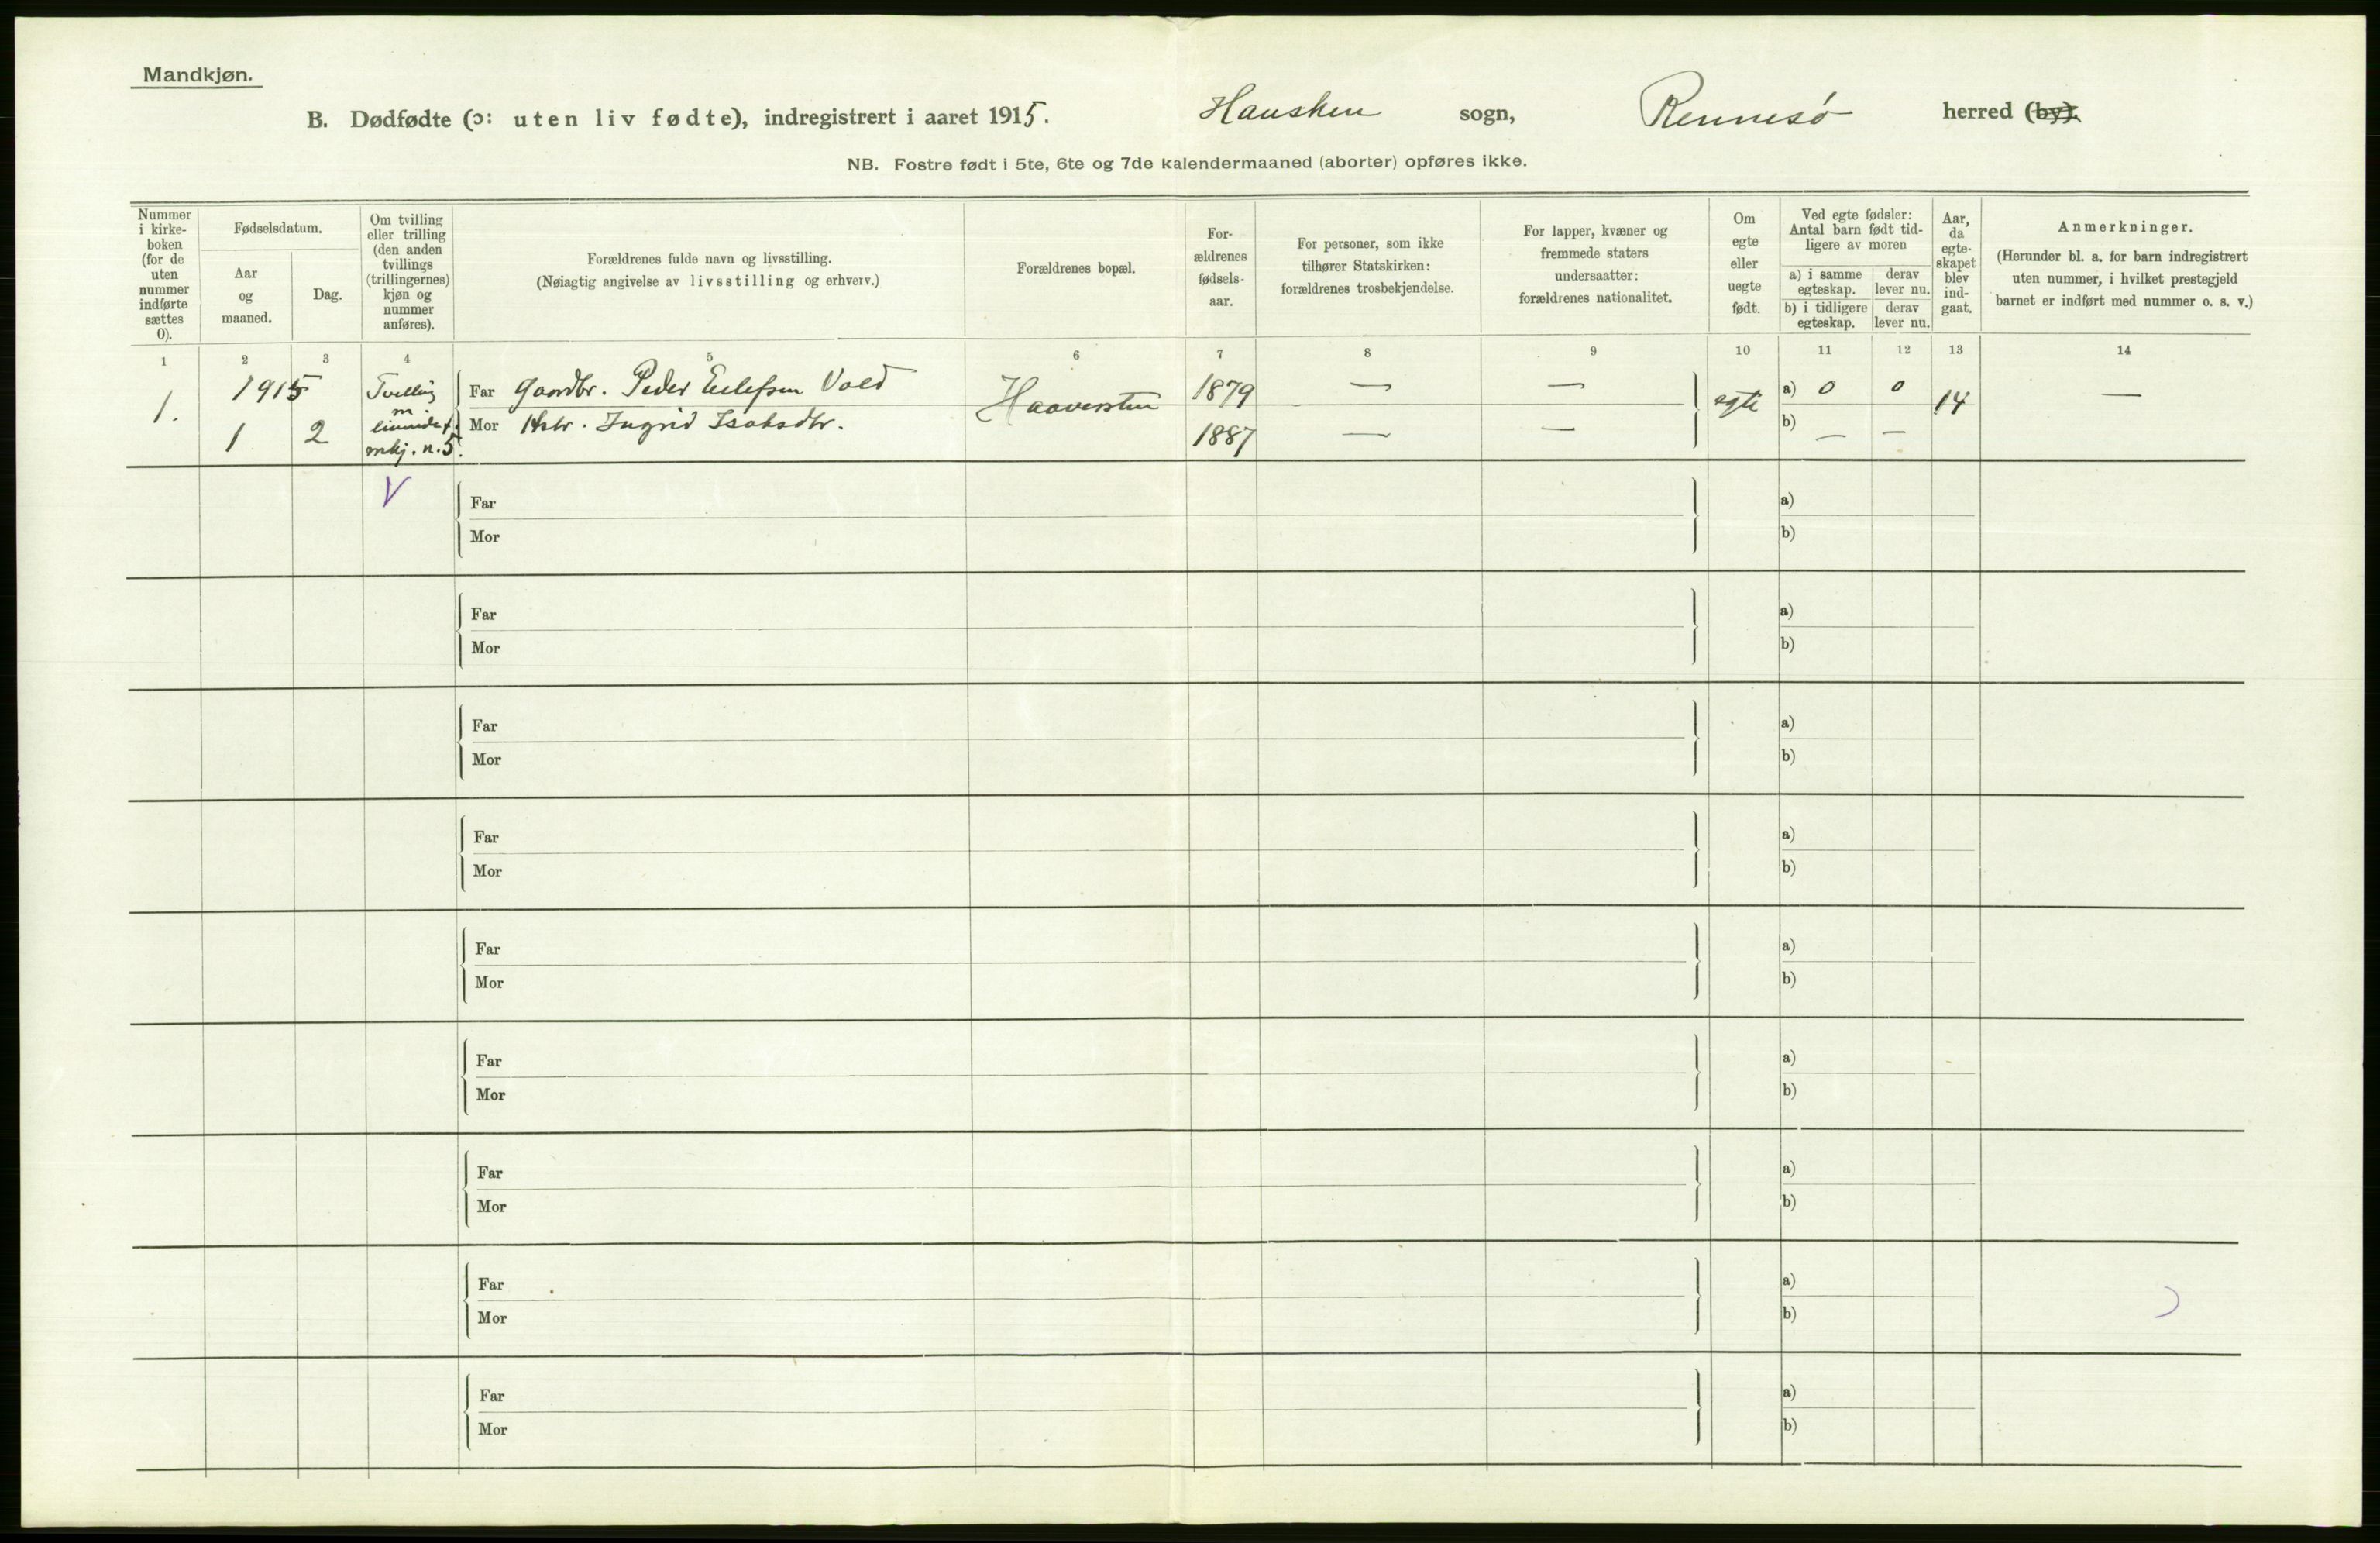 Mandkjøn.
B. Dødfødte (ɔ: uten liv fødte), indregistrert i aaret 1915. Hausken sogn, Rennesö herred (by).
NB. Fostre født i 5te, 6te og 7de kalendermaaned (aborter) opføres ikke.
Nummer
i kirke-
boken
(for de
uten
nummer
indførte
sættes
0).
Fødselsdatum.
Aar
og
maaned.
Dag.
Om tvilling
eller trilling
(den anden
tvillings
(trillingernes)
kjøn og
nummer
anføres).
Forældrenes fulde navn og livsstilling.
(Nøiagtig angivelse av livsstilling og erhverv.)
Forældrenes bopæl.
For-
ældrenes
fødsels-
aar.
For personer, som ikke
tilhører Statskirken:
forældrenes trosbekjendelse.
For lapper, kvæner og
fremmede staters
undersaatter:
forældrenes nationalitet.
Om
egte
eller
uegte
født.
Ved egte fødsler:
Antal barn født tid-
ligere av moren
a) i samme
egteskap.
derav
lever nu.
b) i tidligere
egteskap.
derav
lever nu.
Aar,
da
egte-
skapet
blev
ind-
gaat.
Anmerkninger.
(Herunder bl. a. for barn indregistrert
uten nummer, i hvilket prestegjeld
barnet er indført med nummer o. s. v.)
1 2 3 4 5 6 7 8 9 10 11 12 13 14
1. 1915
1 2
Tvelling
m
mkj. n. 5.
Far Gaardbr. Peder Eilefsen Vold
Mor Hstr. Ingrid Isaksdtr.
1879 — —
1887 — —
egte
a) 0 0
b) — —
14 —
V
Far a)
Mor b)
Far a)
Mor b)
Far a)
Mor b)
Far a)
Mor b)
Far a)
Mor b)
Far a)
Mor b)
Far a)
Mor b)
Far a)
Mor b)
Far a)
Mor b)